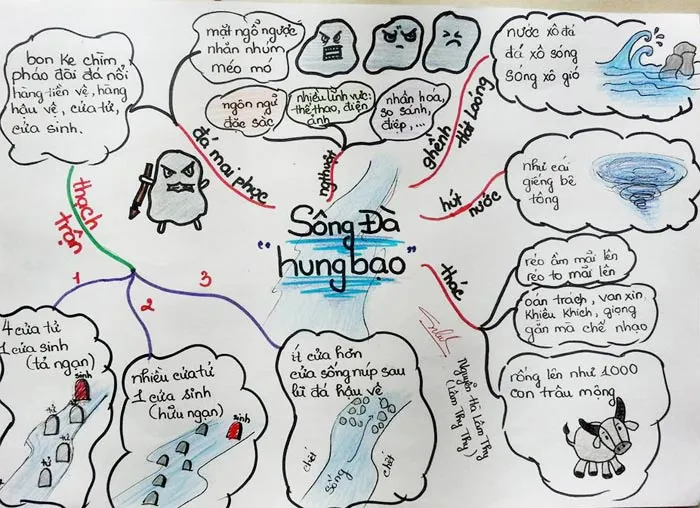 Sông Đà
"hung bạo"
bon ke chìm,
pháo đài đá nổi
hàng tiền vệ, hàng
hậu vệ, cửa tử,
cửa sinh.
mặt ngổ ngược
nhăn nhúm
méo mó
đá mai phục
ngôn ngữ
đặc sắc
nhiều lĩnh vực:
thể thao, điện
ảnh
nhân hóa,
so sánh,
điệp,...
nghệ thuật
ghềnh
Hát Loóng
nước xô đá
đá xô sóng
sóng xô gió
hút
nước
như cái
giếng bê
tông
thác
réo ầm mãi lên
réo to mãi lên
oán trách, van xin
khiêu khích, giọng
gằn mà chế nhạo
rống lên như 1000
con trâu mộng
thạch
trận
1
2
3
4 cửa tử
1 cửa sinh
(tả ngạn)
sinh
tử
tử
tử
nhiều cửa tử
1 cửa sinh
(hữu ngạn)
sinh
ít cửa hơn
cửa sống núp sau
lũ đá hậu vệ
chết
sống
chết
Nguyễn Hà Lâm Thy
(Lâm Thy Thy)